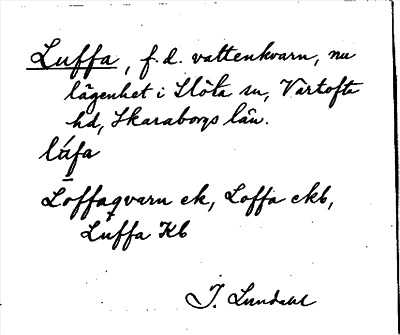 Luffa, f.d. vattenkvarn, nu
lägenhet i Slöta sn, Vartofta
hd, Skaraborgs län.
lúfa
Loffaqvarn ek, Loffa ekb,
Luffa Kb
J. Lundahl